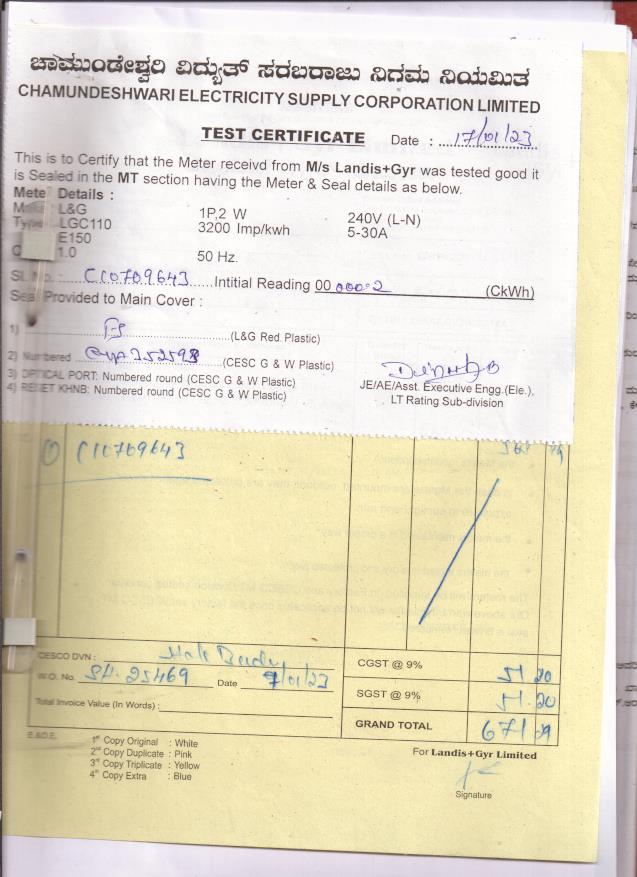 ಚಾಮುಂಡೇಶ್ವರಿ ವಿದ್ಯುತ್ ಸರಬರಾಜು ನಿಗಮ ನಿಯಮಿತ
CHAMUNDESHWARI ELECTRICITY SUPPLY CORPORATION LIMITED
TEST CERTIFICATE Date : 17/01/23
This is to Certify that the Meter receivd from M/s Landis+Gyr was tested good it
is Sealed in the MT section having the Meter & Seal details as below.
Mete Details :
L&G 1P,2 W 240V (L-N)
LGC110 3200 Imp/kwh 5-30A
E150
1.0 50 Hz.
Sl. No. : C10709643 Intitial Reading 00 000.2 (CkWh)
Seal Provided to Main Cover :
1) (L&G Red Plastic)
2) Numbered 252598 (CESC G & W Plastic)
3) OPTICAL PORT: Numbered round (CESC G & W Plastic)
4) RESET KHNB: Numbered round (CESC G & W Plastic)
JE/AE/Asst. Executive Engg.(Ele.),
LT Rating Sub-division
C10709643
CESCO DVN :
W.O. No. 25469 Date 9/01/23
Total Invoice Value (In Words) :
CGST @ 9% 51.20
SGST @ 9% 51.20
GRAND TOTAL 671
E.&O.E.
1st Copy Original : White
2nd Copy Duplicate : Pink
3rd Copy Triplicate : Yellow
4th Copy Extra : Blue
For Landis+Gyr Limited
Signature